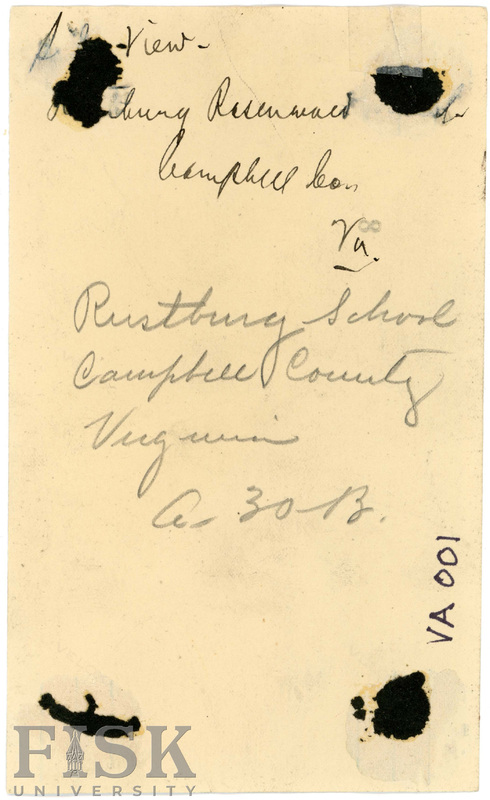 View-
Rosenwald
Campbell Co.
8
Va.
Rustburg School
Campbell County
Virginia
A-30-B.
VA 001
FISK
UNIVERSITY